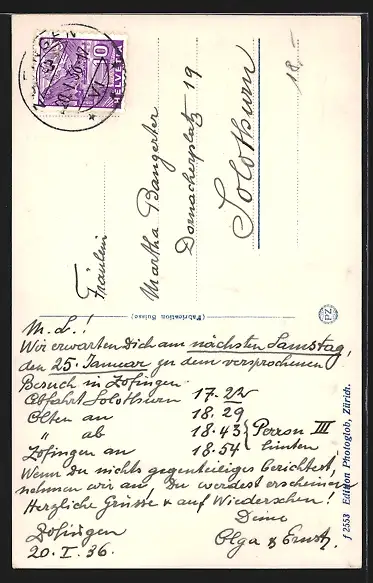 HELVETIA
10
18.-
Fräulein
Martha Bangerter
Dornacherplatz 19
Solothurn
(Fabrication Suisse)
PZ
M. L.!
Wir erwarten Dich am nächsten Samstag,
den 25. Januar zu dem versprochenen
Besuch in Zofingen.
Abfahrt Solothurn 17.22
Olten an 18.29
" ab 18.43 } Perron III
Zofingen an 18.54 hinten
Wenn Du nichts gegenteiliges berichtest,
nehmen wir an Du werdest erscheinen
Herzliche Grüsse & auf Wiedersehen!
Deine
Zofingen Olga & Ernst.
20. I. 36.
f 2553 Edition Photoglob, Zürich.